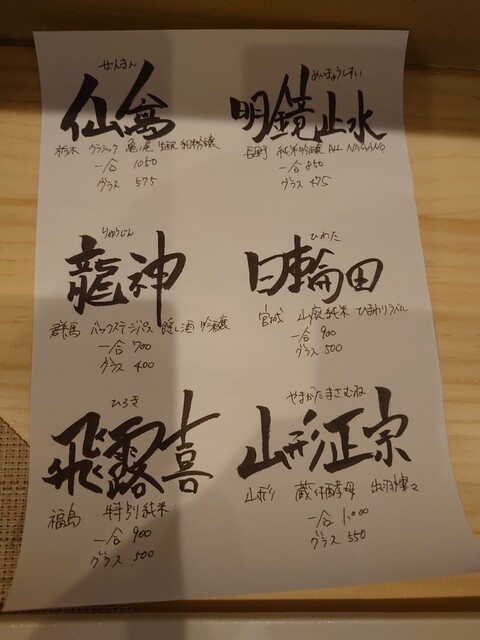 せんきん
仙禽
栃木 クラシック 亀ノ尾 生酛 純粋醸
一合 1050
グラス 575
めいきょうしすい
明鏡止水
長野 純米吟醸 ALL NAGANO
一合 850
グラス 475
りゅうじん
龍神
群馬 バックステージパス 隠し酒 吟醸
一合 700
グラス 400
ひわた
日輪田
宮城 山廃純米 ひまわりラベル
一合 900
グラス 500
ひろき
飛露喜
福島 特別純米
一合 900
グラス 500
やまがたまさむね
山形正宗
山形 蔵付酵母 出羽燦々
一合 1,000
グラス 550